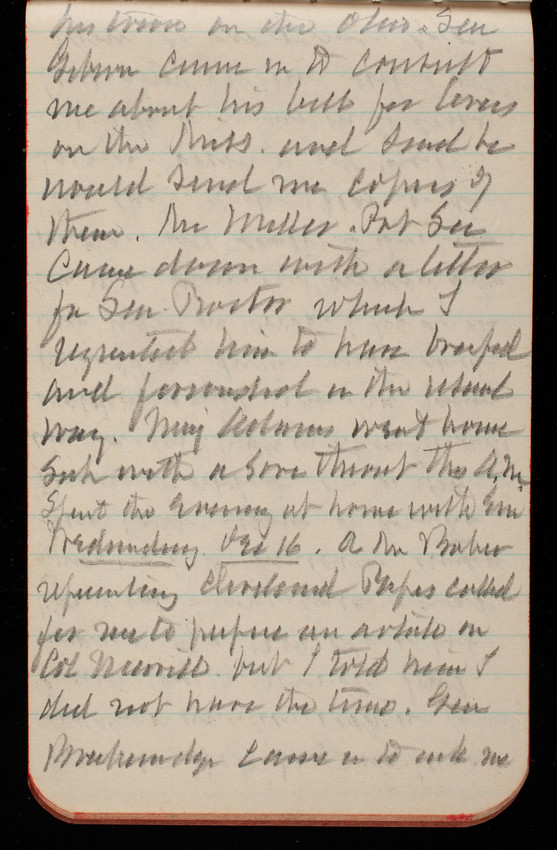 his  on the Ohio. Sen
Gibson came in to consult
me about his bill for levees
on the Miss. and said he
would send me copies of
them. Mr Miller. Pvt Sec
Came down with a letter
fr Sen. Proctor which I
requested him to have briefed
and forwarded in the usual
way. Maj Adams went home
sick with a sore throat this A.M.
Spent the evening at home with Em
Wednesday Dec 16. A Mr Baker
representing Cleveland Papers called
for me to prepare an article on
Col Merrill but I told him I
did not have the time. Gen
Breckinridge came in to ask me